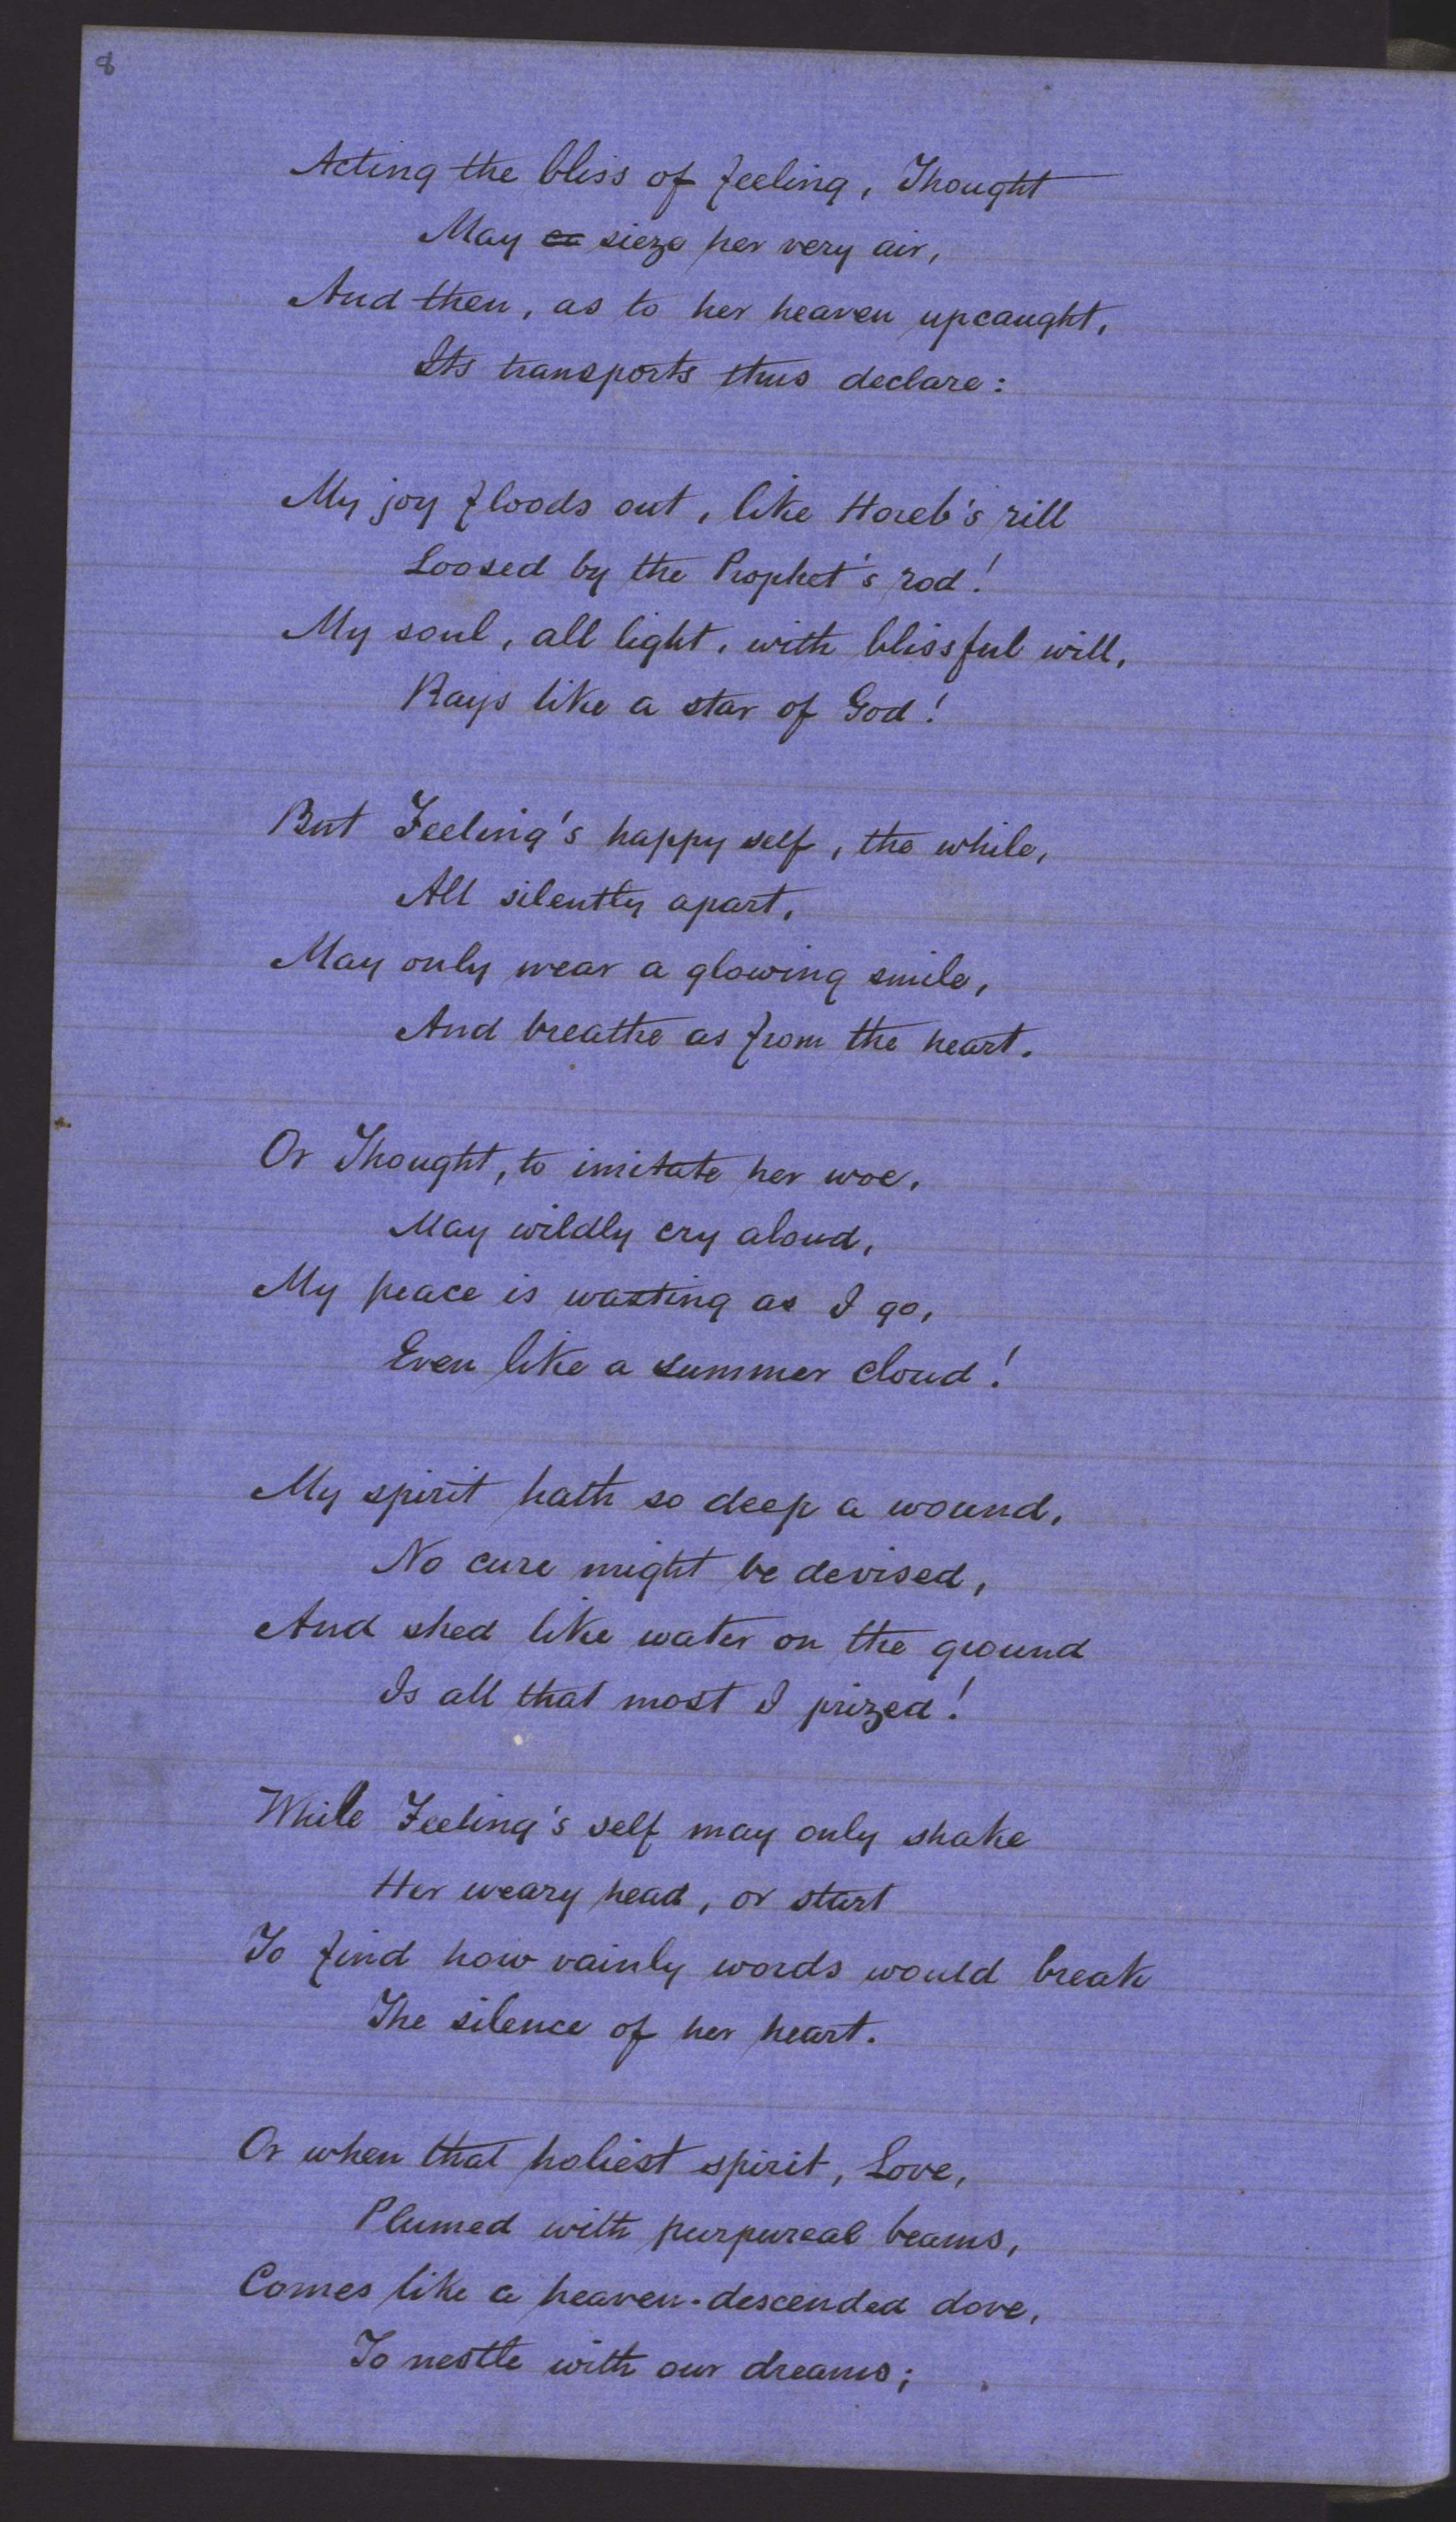 8
Acting the bliss of feeling, Thought
May sieze her very air,
And then, as to her heaven upcaught,
Its transports thus declare:
My joy floods out, like Horeb's rill
Loosed by the Prophet's rod!
My soul, all light, with blissful will,
Rays like a star of God!
But Feeling's happy self, the while,
All silently apart,
May only wear a glowing smile,
And breathe as from the heart.
Or Thought, to imitate her woe,
May wildly cry aloud,
My peace is wasting as I go,
Even like a summer cloud!
My spirit hath so deep a wound,
No cure might be devised,
And shed like water on the ground
Is all that most I prized!
While Feeling's self may only shake
Her weary head, or start
To find how vainly words would break
The silence of her heart.
Or when that holiest spirit, Love,
Plumed with purpureal beams,
Comes like a heaven-descended dove,
To nestle with our dreams;